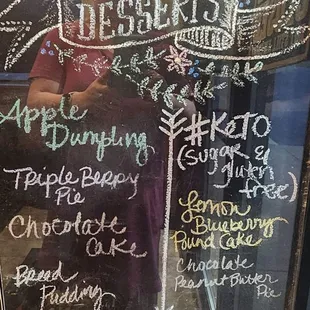 DESSERTS
Apple
Dumpling
Triple Berry
Pie
Chocolate
Cake
Bread
Pudding
#Keto
(Sugar &
gluten
free)
Lemon
Blueberry
Pound Cake
Chocolate
Peanut Butter
Pie